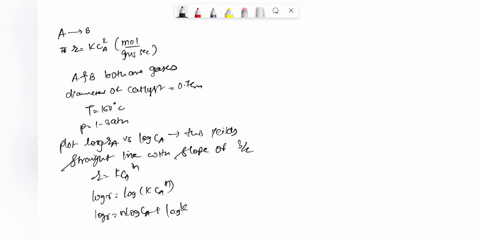 A → B
r = KC_A^2 (mol / gm sec)
A & B both are gases
diameter of catalyst = 0.7cm
T = 160°C
P = 1-3 atm
plot log r_A vs log C_A → this yields
straight line with slope of 3/2
r = KC_A^n
log r = log (KC_A^n)
log r = n log C_A + log K